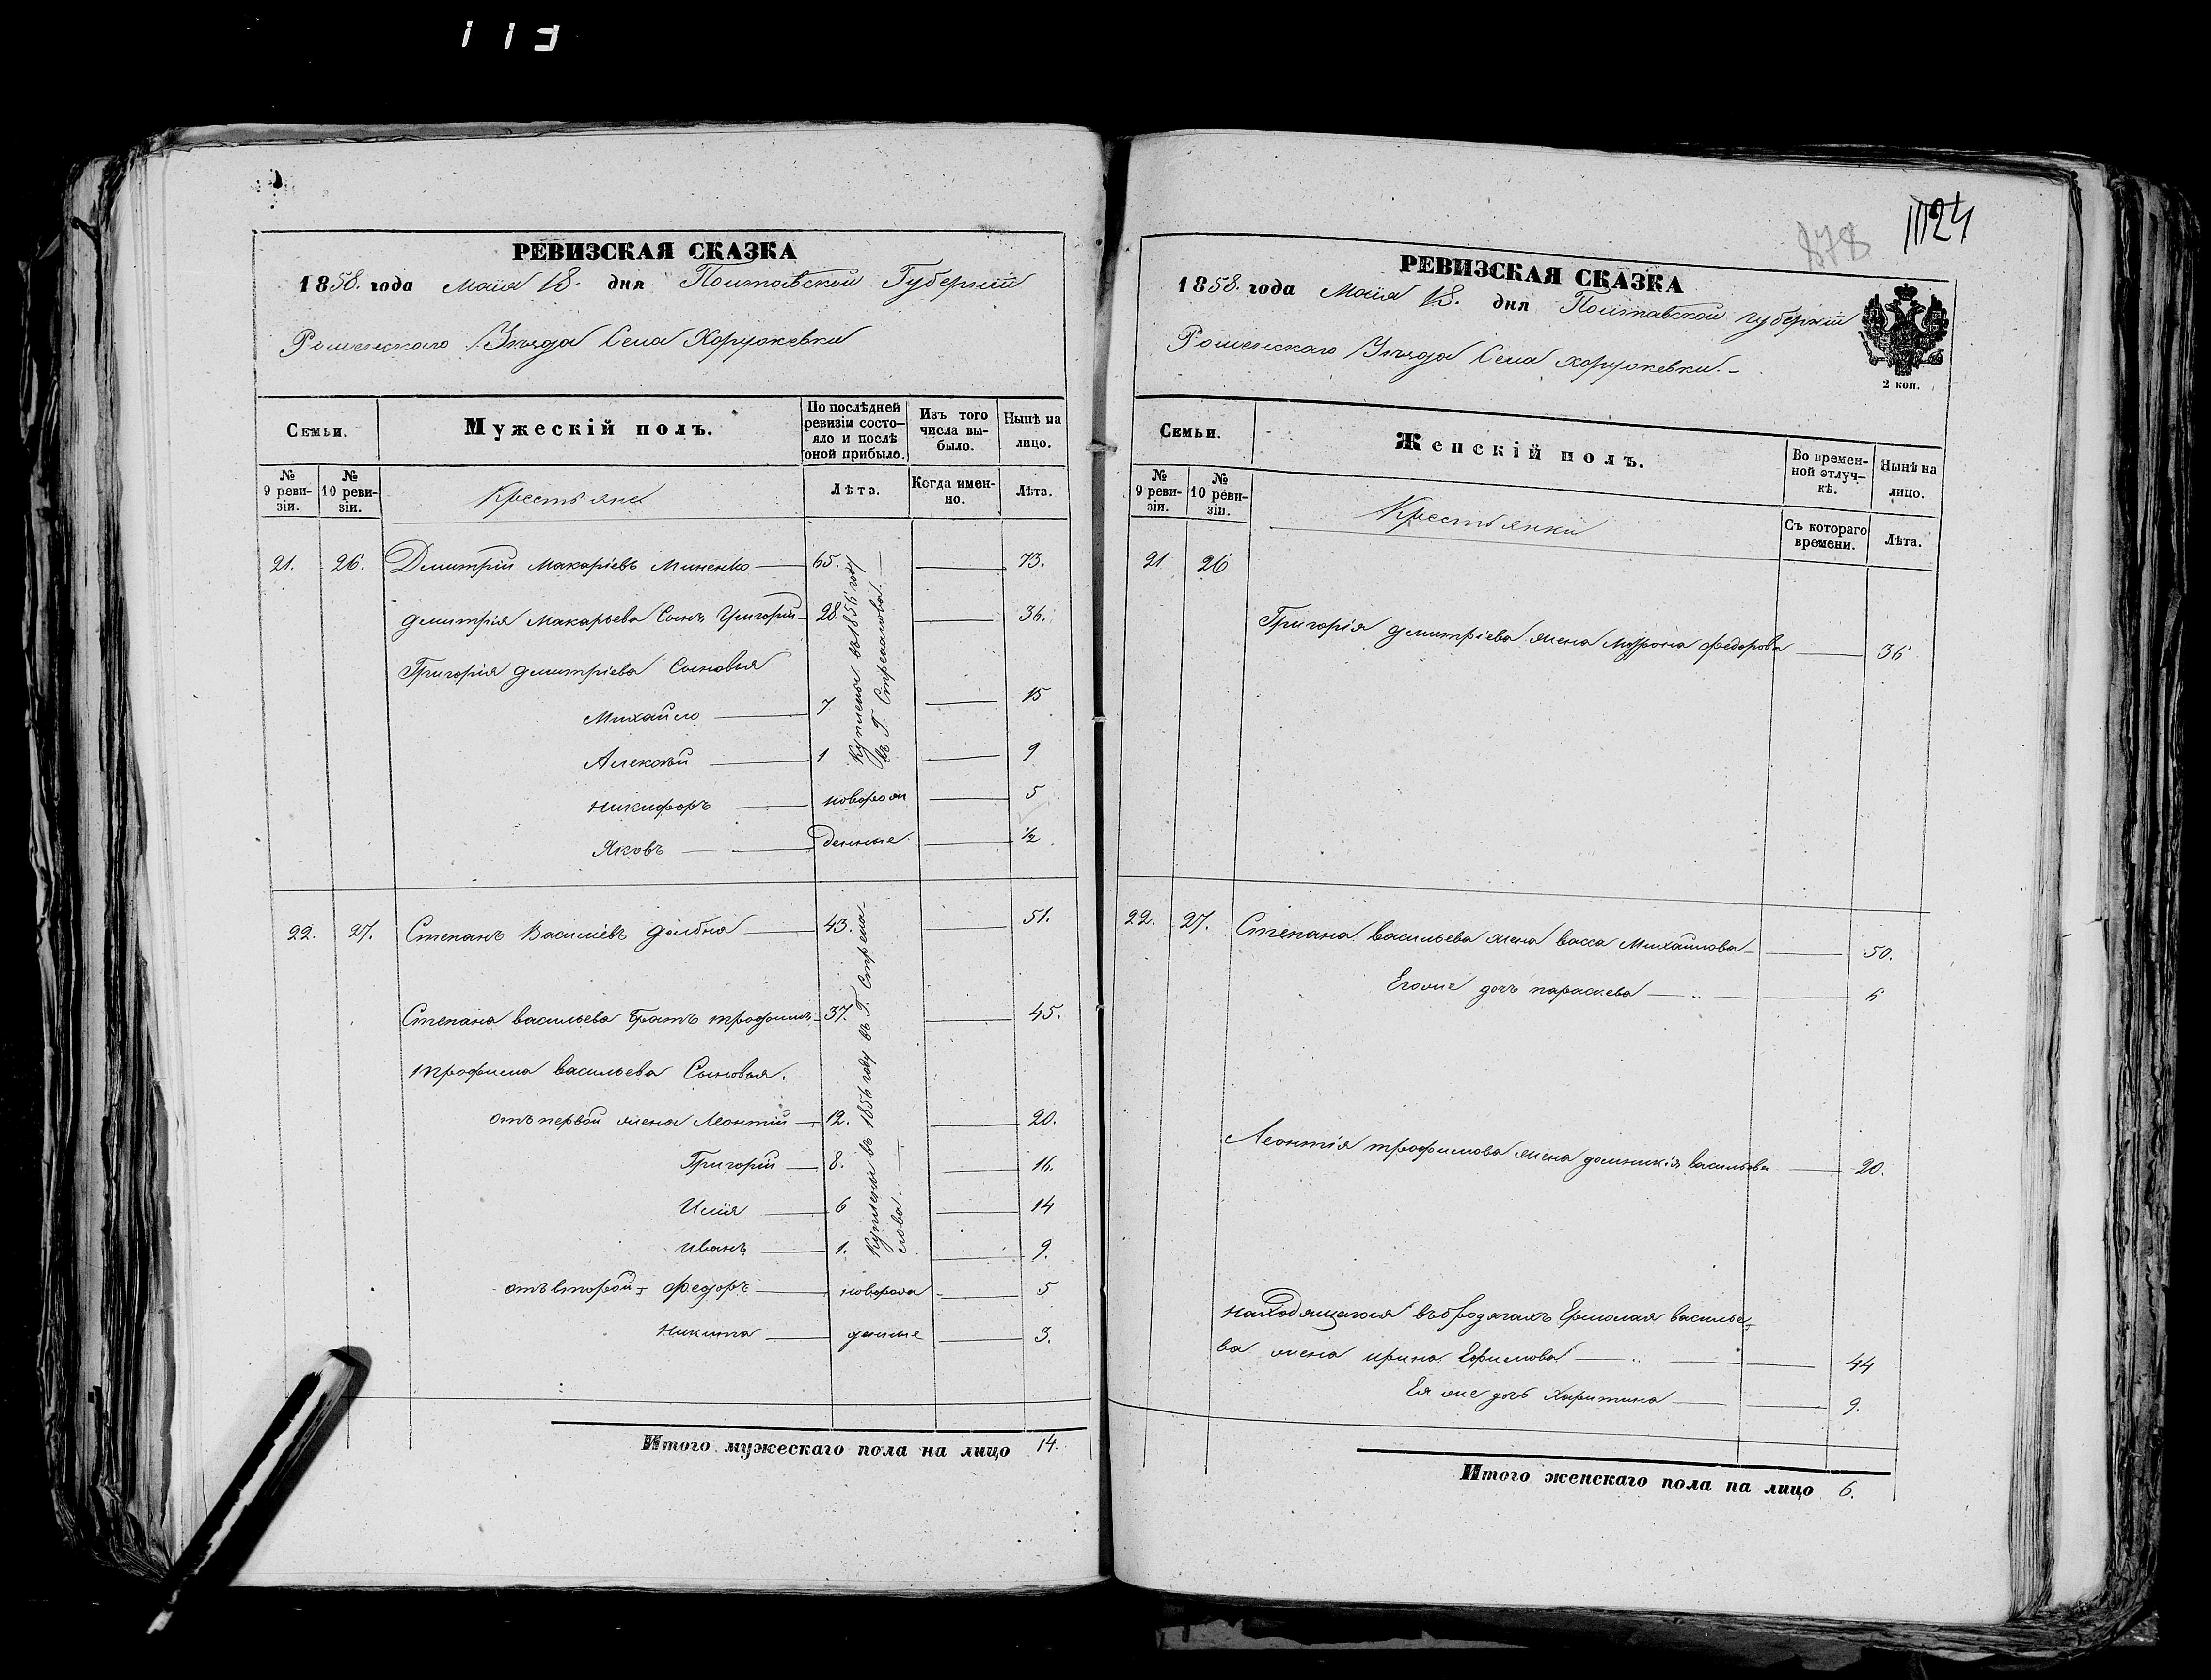 113
РЕВИЗСКАЯ СКАЗКА
1858. года Маія 18. дня Полтавской Губерніи
Роменскаго Уѣзда Села Хоружевки
Семьи.
Мужескій полъ.
По послѣдней ревизіи состояло и послѣ оной прибыло.
Изъ того числа выбыло.
Нынѣ на лицо.
№ 9 ревизіи.
№ 10 ревизіи.
Крестьяне
Лѣта.
Когда именно.
Лѣта.
21. 26. Дмитрій Макаріевъ Миненко 65. 73.
Дмитрія Макарьева Сынъ Григорій 28. 36.
Григорія Дмитріева Сыновья
Михайло 7 15
Алексѣй 1 9
Никифоръ новорож 5
Яковъ денные 1/2
Куплены въ 1856 году
въ Г. Стремоухова
22. 27. Степанъ Василіевъ Долбня 43. 51.
Степана Васильева Братъ Трофимъ 37. 45.
Трофима Васильева Сыновья.
отъ первой жены Леонтій 12. 20.
Григорій 8. 16.
Илія 6 14
Иванъ 1. 9.
отъ второй Федоръ новорож 5
Никита денные 3.
Куплены въ 1856 году въ Г.
Итого мужескаго пола на лицо 14.
1124
878
РЕВИЗСКАЯ СКАЗКА
1858. года Маія 18. дня Полтавской Губерніи
Роменскаго Уѣзда Села Хоружевки.
2 коп.
Семьи.
Женскій полъ.
Во временной отлучкѣ.
Нынѣ на лицо.
№ 9 ревизіи.
№ 10 ревизіи.
Крестьянки
Съ котораго времени.
Лѣта.
21 26
Григорія Дмитріева жена Мотрона Федорова 36
22. 27. Степана Васильева жена Васса Михайлова 50.
Егоже дочь Параскева 6
Леонтія Трофимова жена Домникія Васильева 20.
Находящагося въ бродягахъ Ермолая Василье
ва жена Ирина Ефимова 44
Ея же дочь Харитина 9.
Итого женскаго пола на лицо 6.